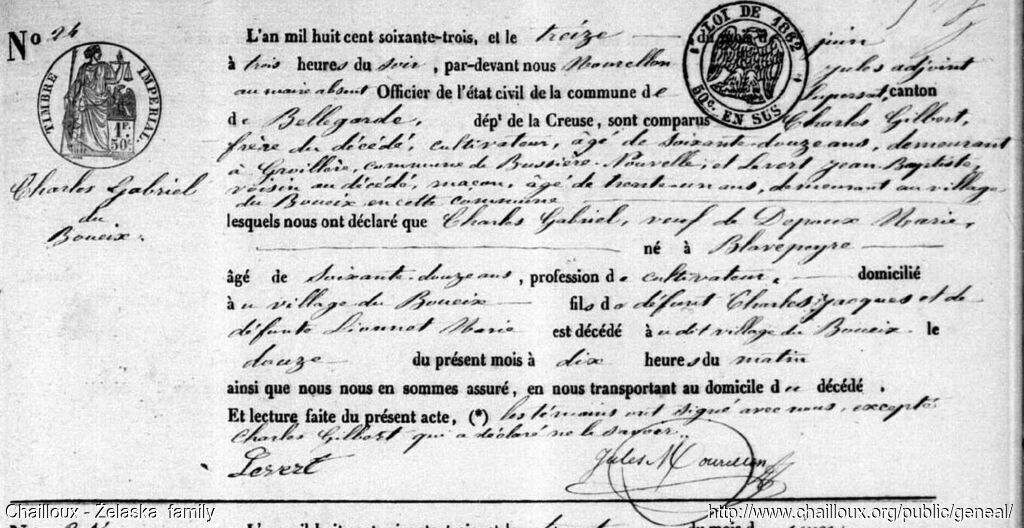 N° 24
TIMBRE IMPERIAL.
1F. 50c.
LOI DE 1862
50c. EN SUS
Charles Gabriel
du
Boueix.
L'an mil huit cent soixante-trois, et le treize du mois de juin
à trois heures du soir, par-devant nous Mourellon Jules adjoint
au maire absent Officier de l'état civil de la commune de Lupersat, canton
de Bellegarde, dépt de la Creuse, sont comparus Charles Gilbert,
frère du décédé, cultivateur, âgé de soixante-douze ans, demeurant
à commune de Bussière-Nouvelle, et Levert Jean Baptiste
voisin au décédé, maçon, âgé de trente-un ans, demeurant au village
du Boueix en cette commune
lesquels nous ont déclaré que Charles Gabriel, veuf de Depoux Marie,
né à Blavepeyre
âgé de soixante-douze ans, profession de cultivateur, domicilié
au village du Boueix fils de défunt Charles Jacques et de
défunte Lionnet Marie est décédé au dit village du Boueix le
douze du présent mois à dix heures du matin
ainsi que nous nous en sommes assuré, en nous transportant au domicile du décédé.
Et lecture faite du présent acte, (*) les témoins ont signé avec nous, excepté
Charles Gilbert qui a déclaré ne le savoir.
Levert Jules Mourellon
L'an mil huit cent soixante-trois, et le du mois d
Chailloux - Żelaska family http://www.chailloux.org/public/geneal/